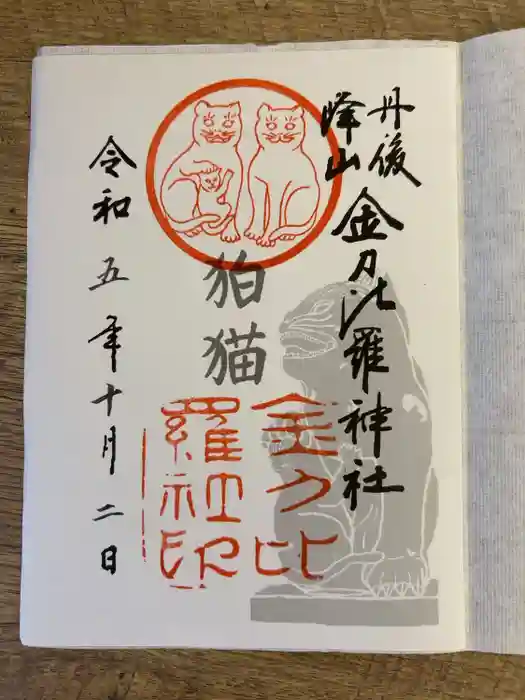 丹後
峰山
金刀比羅神社
狛猫
金刀比
羅社印
令和五年十月二日